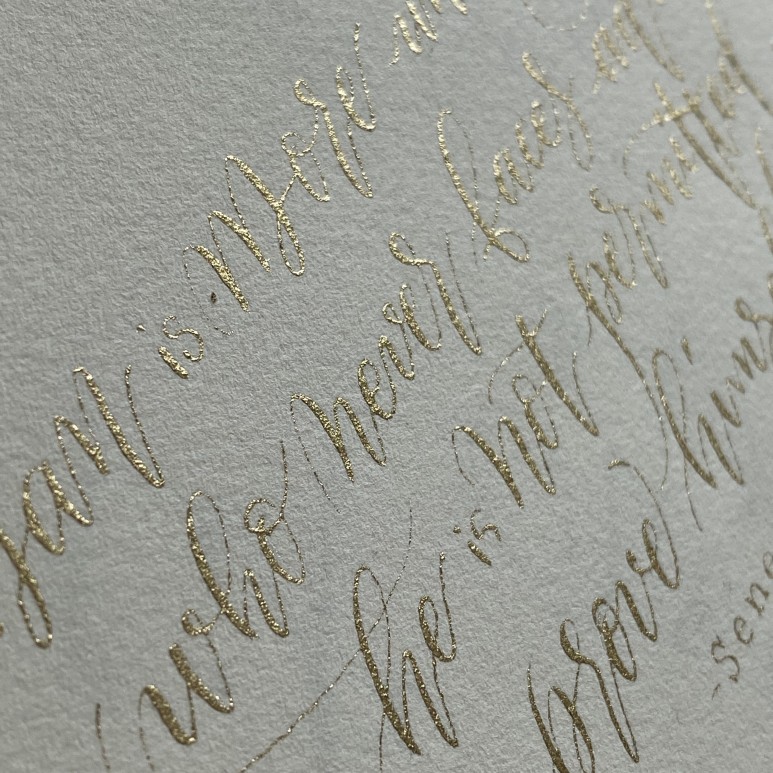 man is More un
who never faces
he is not permitt
prove hims
-Sene